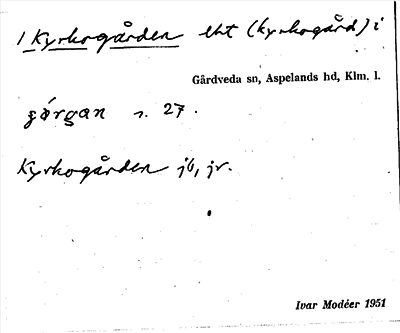 1 Kyrkogården elt (kyrkogård) i
Gårdveda sn, Aspelands hd, Klm. l.
s. 27.
Kyrkogården jb, jr.
Ivar Modéer 1951